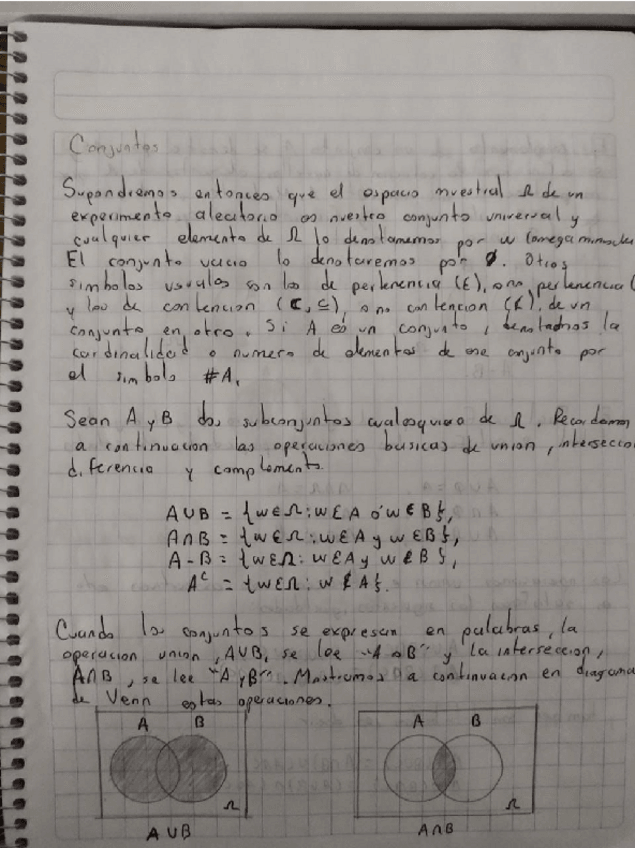 Conjuntos
Supondremos entonces que el espacio muestral Ω de un
experimento aleatorio es nuestro conjunto universal y
cualquier elemento de Ω lo denotaremos por w (omega minuscula
El conjunto vacio lo denotaremos por Ø. Otros
simbolos usuales son los de pertenencia (∈), o no pertenencia (
y los de contencion (⊂, ⊆), o no contencion (⊄), de un
conjunto en otro. Si A es un conjunto, denotadmos la
cardinalidad o numero de elementos de ese conjunto por
el simbolo #A.
Sean A y B dos subconjuntos cualesquiera de Ω. Recordamos
a continuacion las operaciones basicas de union, interseccio
diferencia y complemento.
A∪B = {w∈Ω: w∈A ó w∈B},
A∩B = {w∈Ω: w∈A y w∈B},
A-B = {w∈Ω: w∈A y w∉B},
Aᶜ = {w∈Ω: w∉A}.
Cuando los conjuntos se expresan en palabras, la
operacion union, A∪B, se lee "A o B" y la interseccion,
A∩B, se lee "A y B". Mostramos a continuacion en diagrama
de Venn estas operaciones.
A B A B
Ω Ω
A∪B A∩B